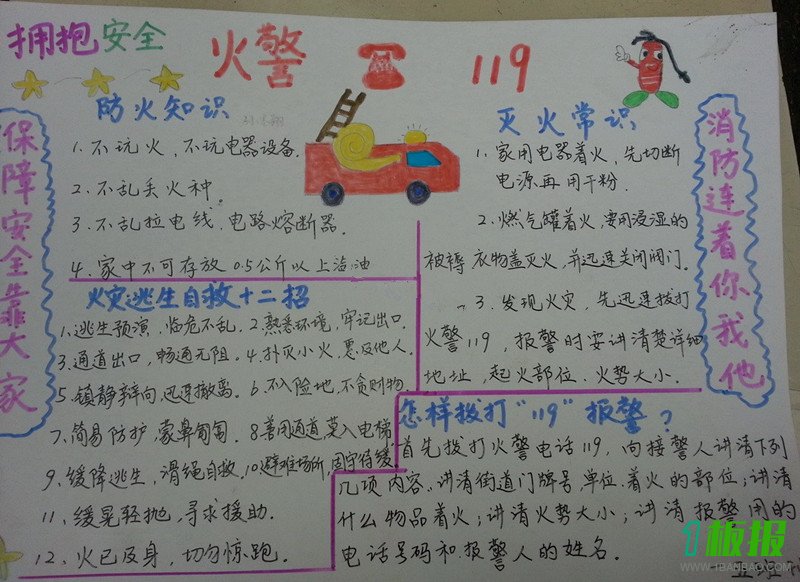 拥抱安全
火警 119
保障安全靠大家
防火知识
1.不玩火、不玩电器设备.
2.不乱丢火种。
3.不乱拉电线、电路熔断器.
4、家中不可存放 0.5公斤以上油
火灾逃生自救十二招
1、逃生预演,临危不乱. 2.熟悉环境,牢记出口.
3.通道出口,畅通无阻. 4.扑灭小火,惠及他人.
5.镇静辨向,迅速撤离. 6.不入险地,不贪财物
7.简易防护,蒙鼻匍匐. 8善用通道,莫入电梯.
9、缓降逃生,滑绳自救. 10避难场所,固守待援.
11、缓晃轻抛,寻求援助.
12、火已及身,切勿惊跑.
灭火常识
1.家用电器着火,先切断
电源再用干粉.
2.燃气罐着火,要用浸湿的
被褥、衣物盖灭火,并迅速关闭阀门.
3.发现火灾,先迅速拨打
火警119,报警时要讲清楚详细
地址,起火部位、火势大小.
消防连着你我他
怎样拨打"119"报警?
首先拨打火警电话119,向接警人讲清下列
几项内容、讲清街道门牌号,单位、着火的部位;讲清
什么物品着火;讲清火势大小;讲清报警用的
电话号码和报警人的姓名.
板报
WWW.1BANBAO.COM